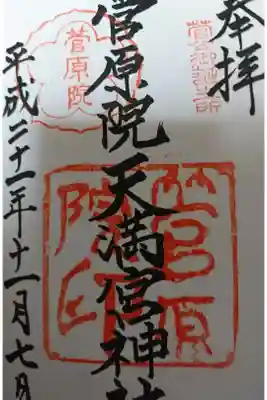 奉拝
菅原院天満宮神社
平成二十一年十一月七日
菅原院
菅原院印